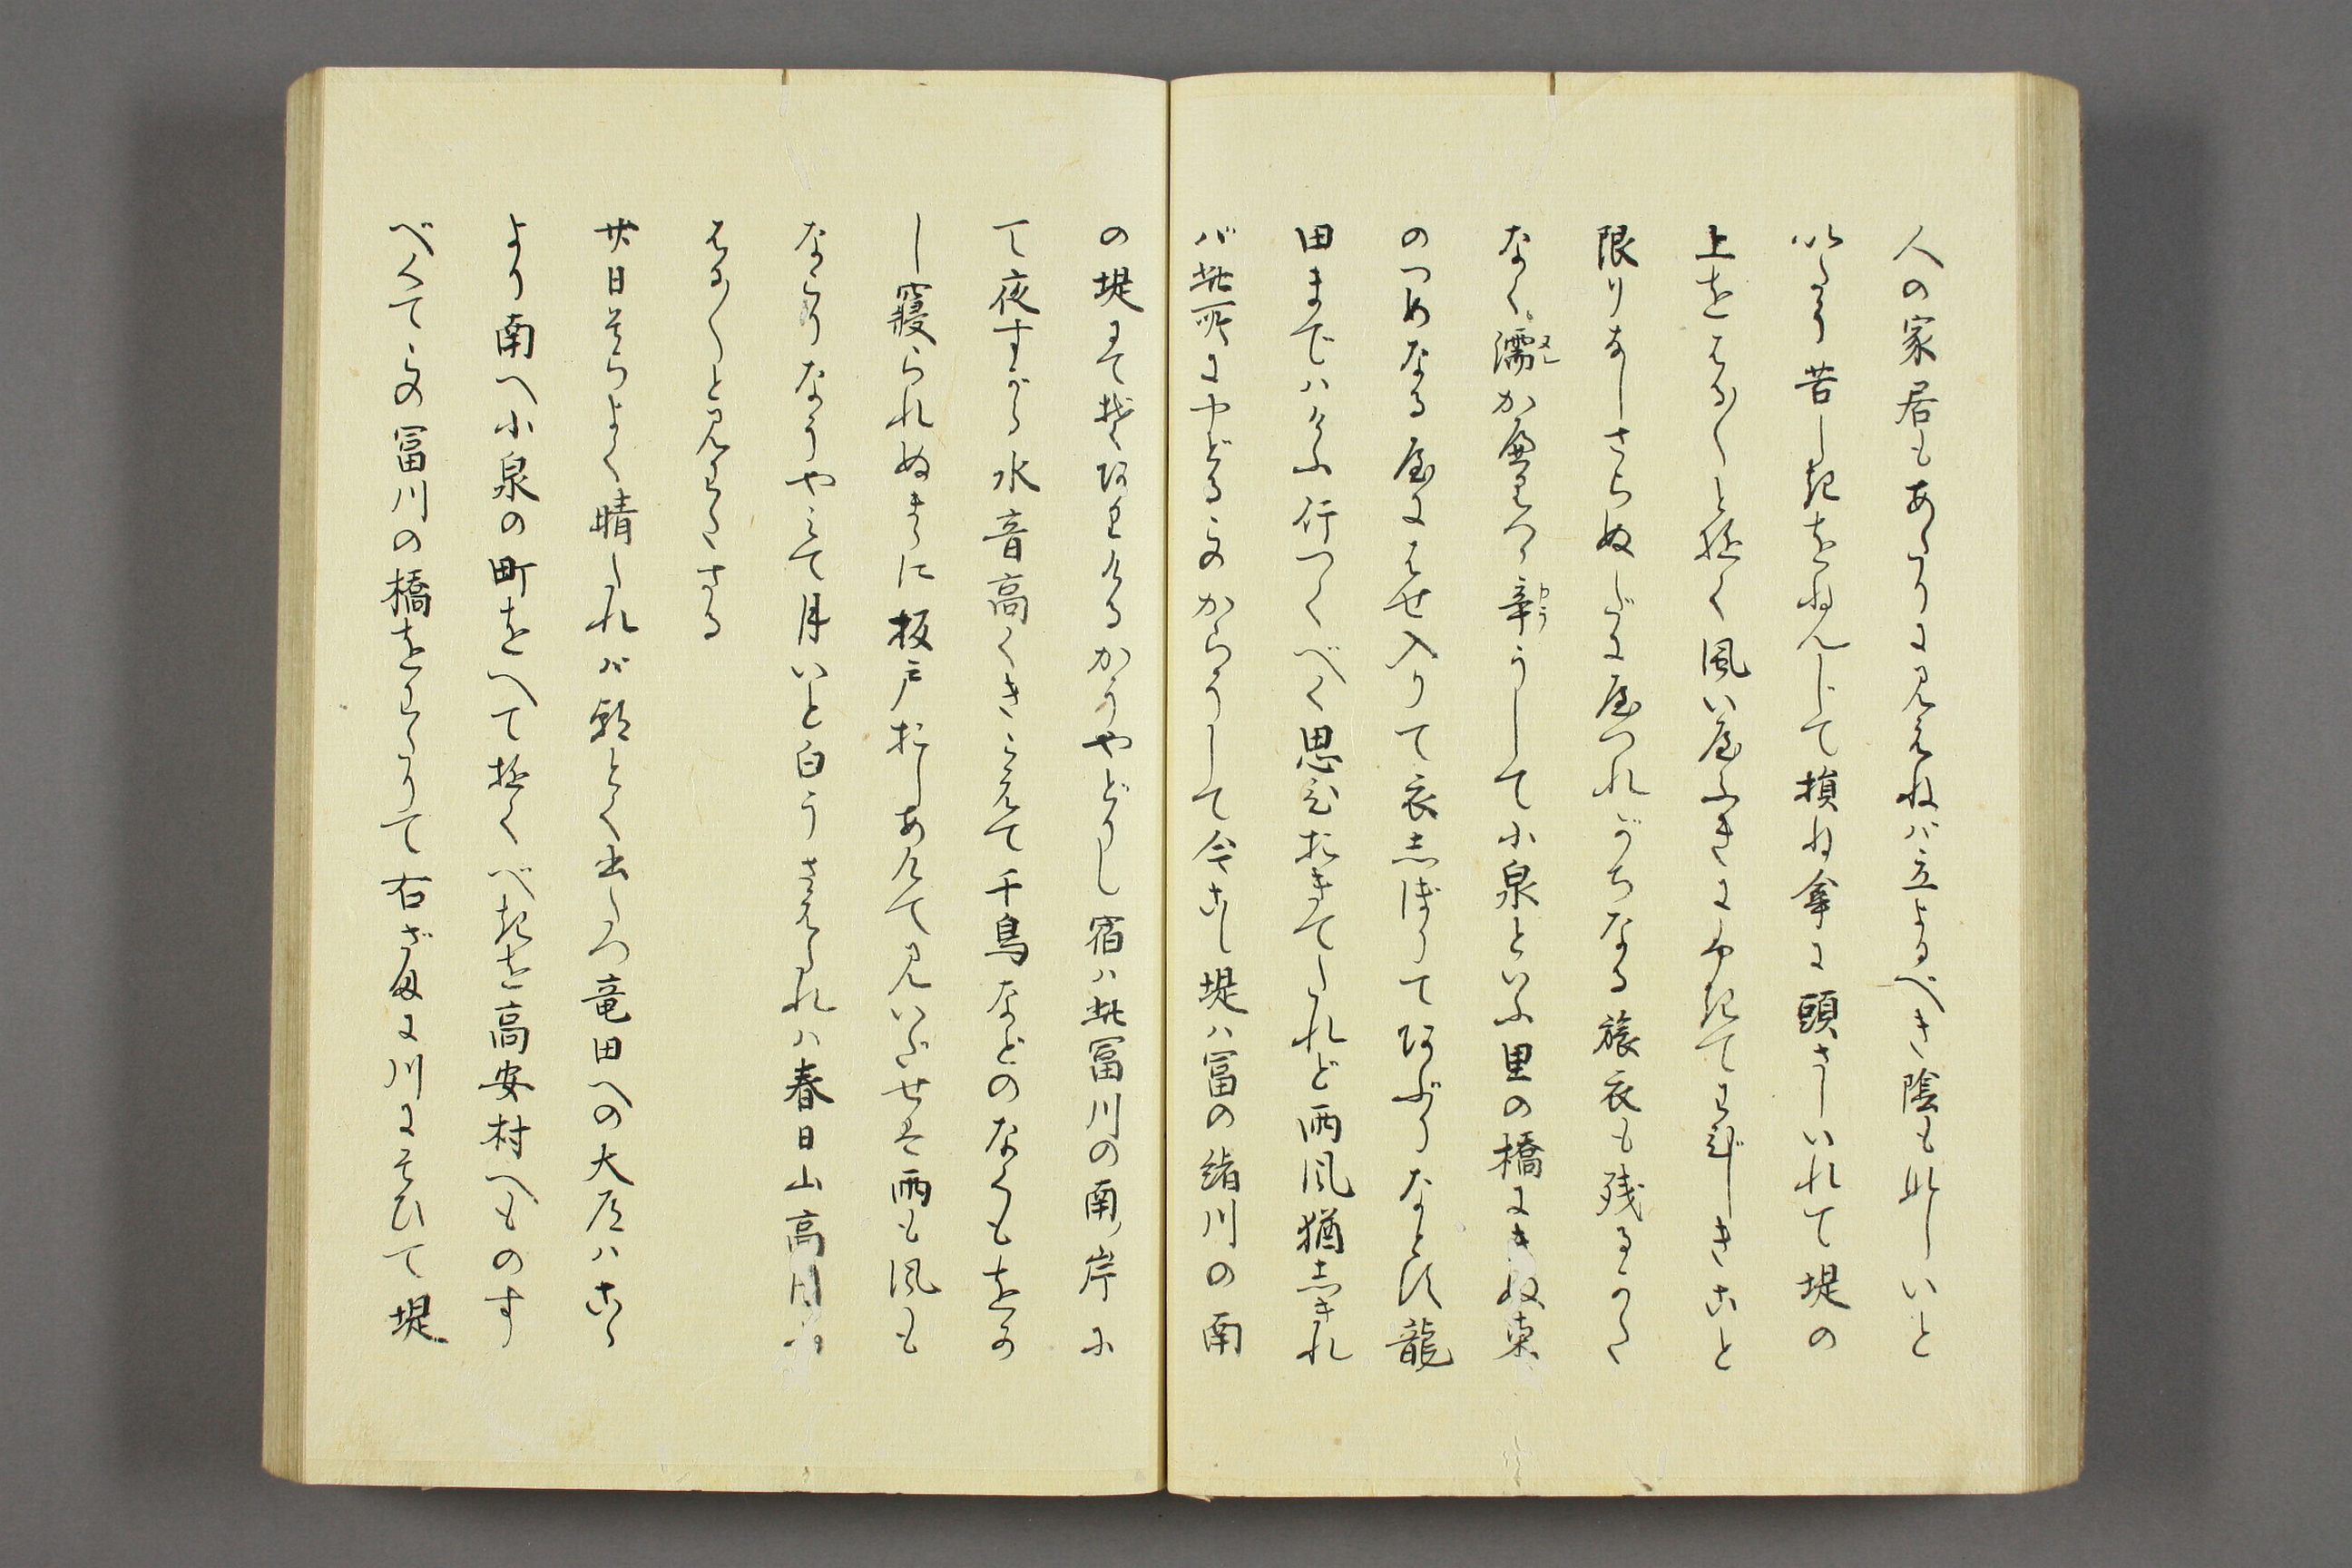 人の家居もあたりに見えねば立よるべき陰もなしいと
いたう苦しきをねんじて損ね傘に頭さしいれて堤の
上をはる〳〵と行く風い
限りなしさらぬだに屋つれがちなる旅衣も残るかた
なく濡か辛うして小泉といふ里の橋にきぬ東
のつめなる屋にはせ入りて衣しぼりてあぶりなとす龍
田まではけふ行つくべく思ひおきてたれど雨風猶しきれ
ば此所にやどるそのからうして今こし堤は富の緒川の南
の堤にて有けるかうやどりし宿は此冨川の南ノ岸に
て夜すがら水音高くきこえて千鳥などのなくもをか
し寝られぬまゝに板戸おしあけて見いだせば雨も風も
なごりなうやみて月いと白うさえたれは春日山高円山
はる〴〵と見わたさる
廿日そらよく晴たれば朝とく出たつ竜田への大道はこゝ
より南へ小泉の町をへて行くべきを高安村へものす
べくてその冨川の橋をわたりて右ざまに川にそひて堤